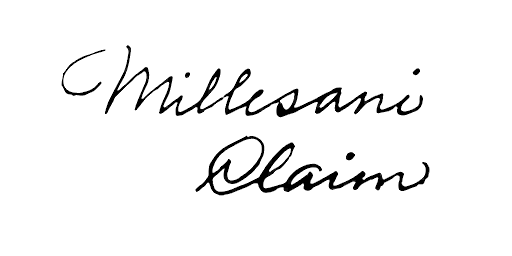 Millesani
Claim